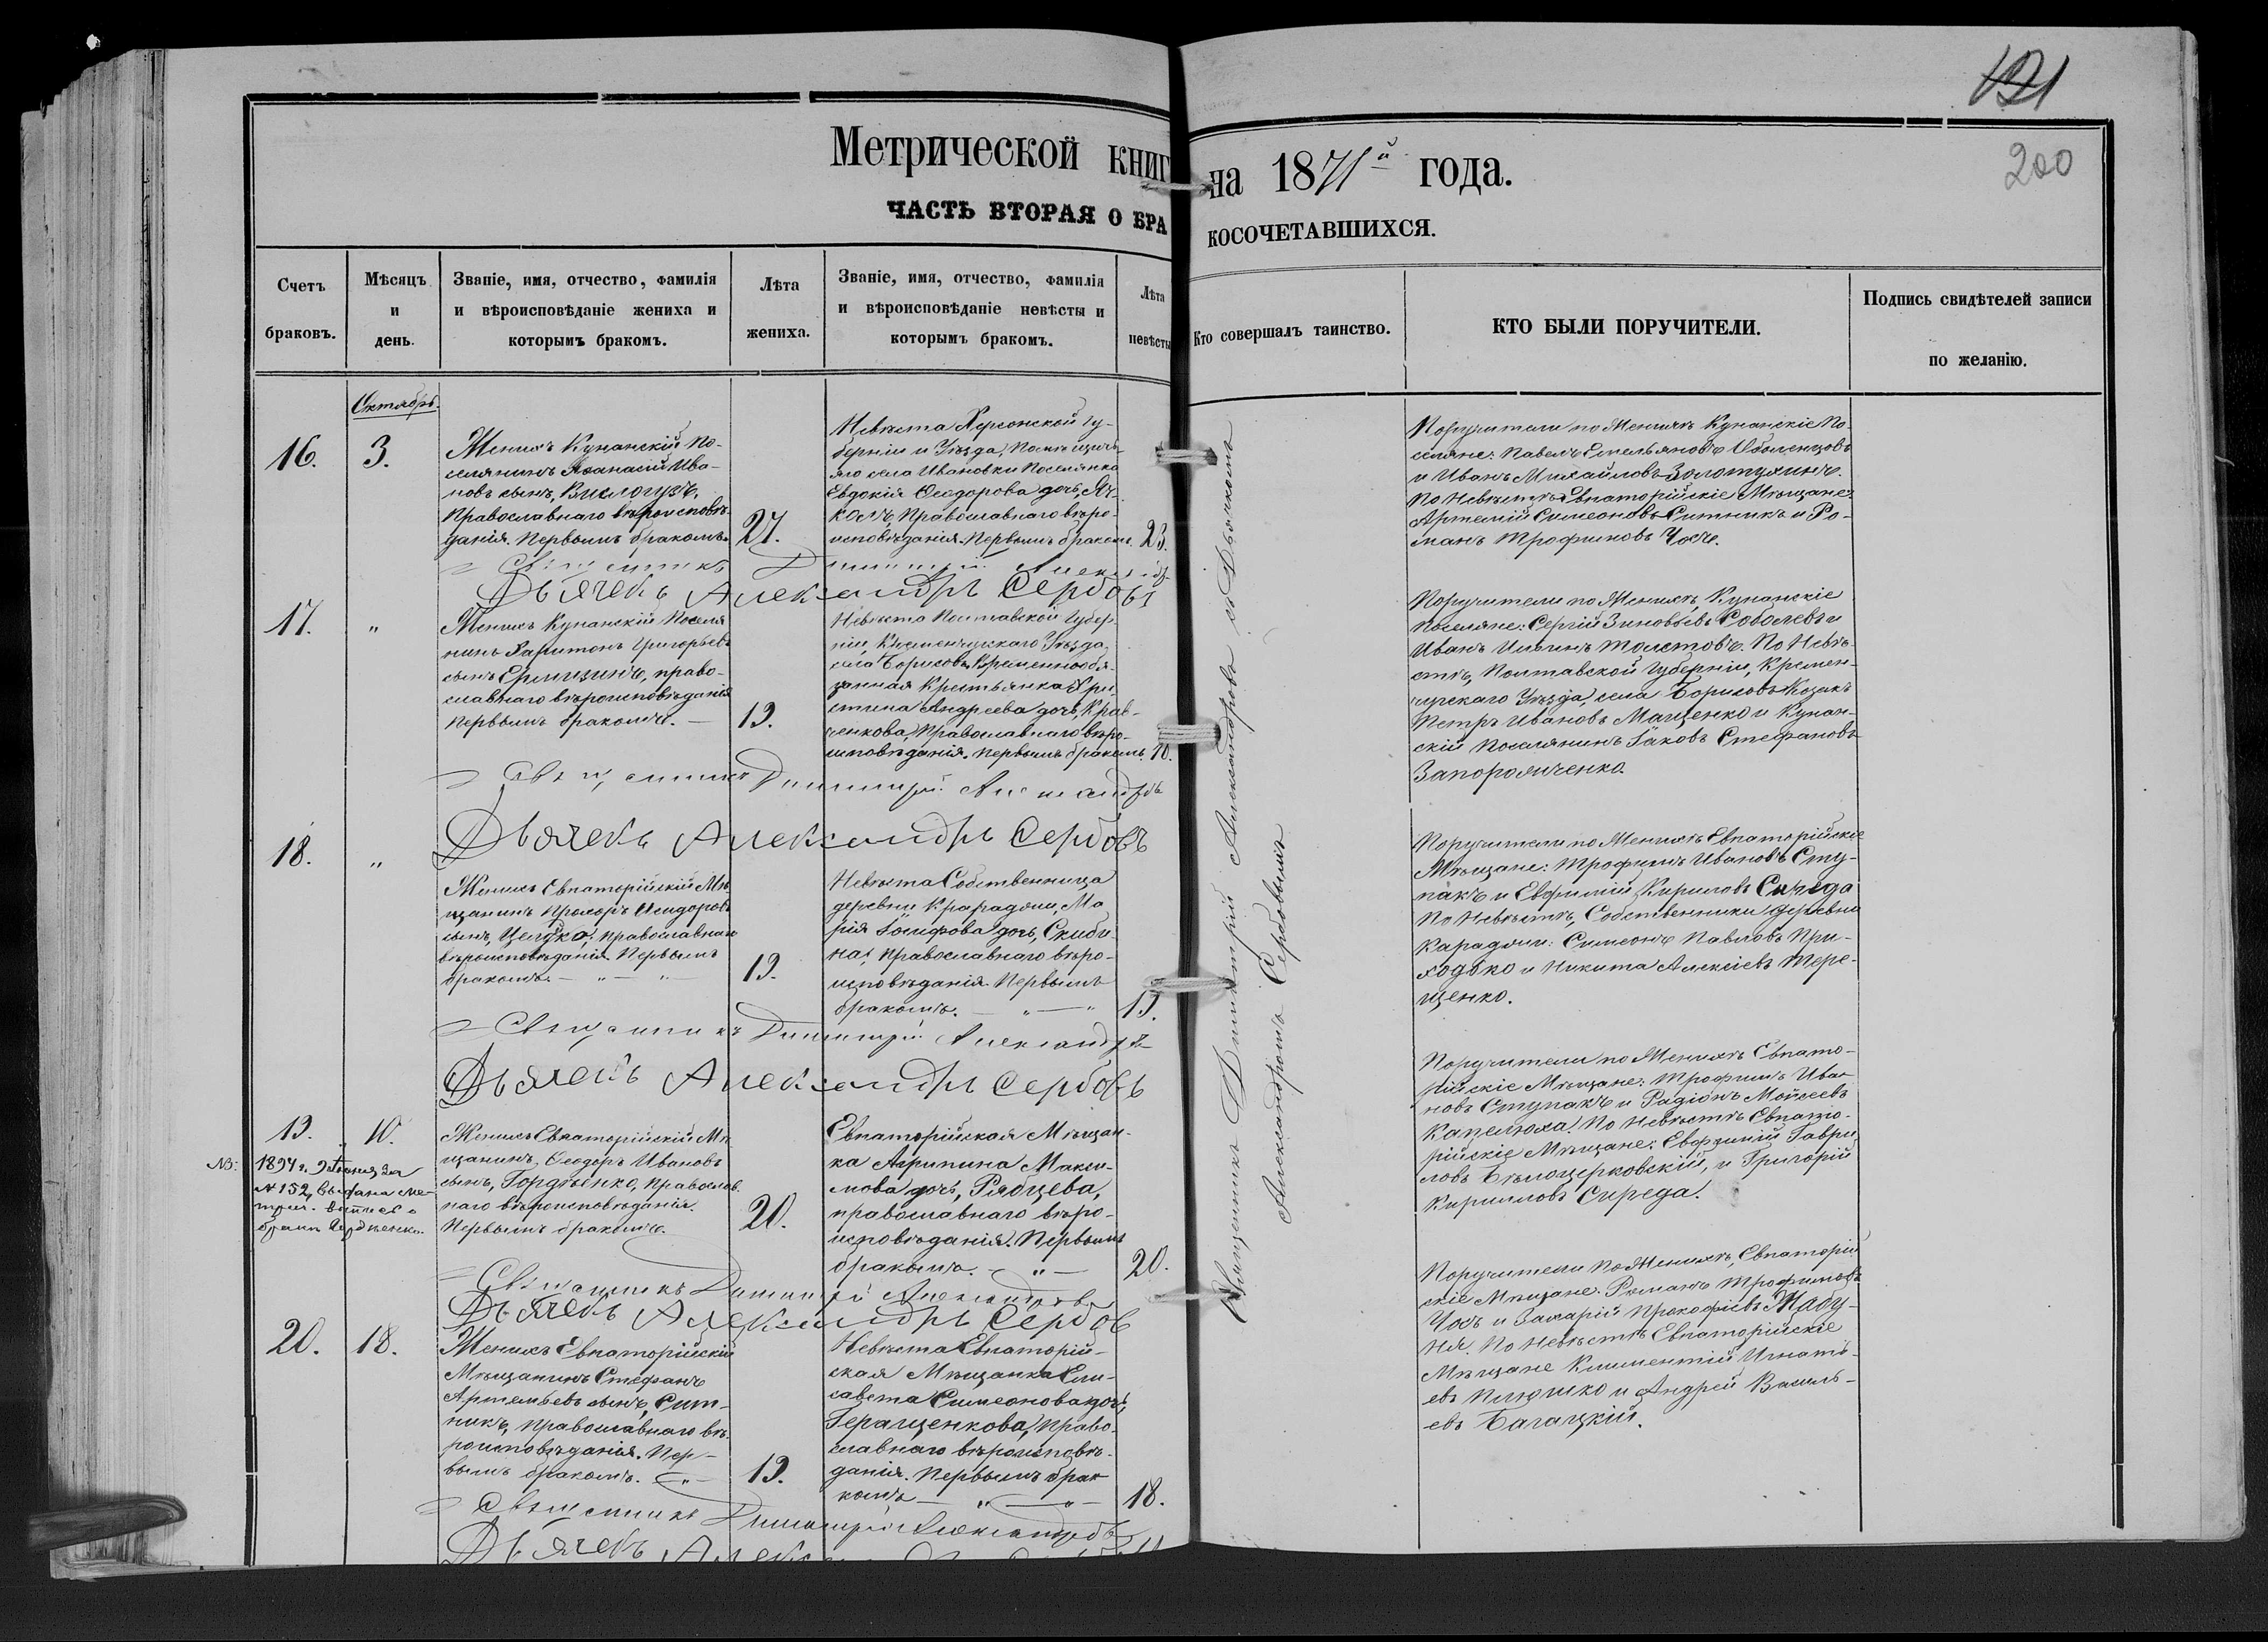 Метрической книг
на 1871й года.
121
200
ЧАСТЬ ВТОРАЯ О БРА
КОСОЧЕТАВШИХСЯ.
Счетъ браковъ.
Мѣсяцъ и день.
Званіе, имя, отчество, фамилія
и вѣроисповѣданіе жениха и
которымъ бракомъ.
Лѣта жениха.
Званіе, имя, отчество, фамилія
и вѣроисповѣданіе невѣсты и
которымъ бракомъ.
Лѣта невѣсты
Кто совершалъ таинство.
КТО БЫЛИ ПОРУЧИТЕЛИ.
Подпись свидѣтелей записи
по желанію.
Октябрь.
16.
3.
Женихъ Кунанскій По-
селянинъ Аѳанасій Ива-
новъ сынъ, Вислогузъ,
Православнаго вѣроисповѣ-
данія. Первымъ бракомъ.
27.
Невѣста Херсонской Гу-
берніи и Уѣзда, Помѣщичь-
яго села Ивановки Поселянка
Евдокія Ѳеодорова дочь,
Православнаго вѣро-
исповѣданія. Первымъ бракомъ.
23.
Поручители по Женихѣ Кунанскіе По-
селяне: Павелъ Емельяновъ Оболенцовъ
и Иванъ Михайловъ Золотухинъ.
По Невѣстѣ Евпаторійскіе Мѣщане:
Артемій Симеоновъ Ситникъ и Ро-
манъ Трофимовъ Чохъ.
Священникъ Димитрій Александровъ
Дьячекъ Александръ Сербовъ
17.
"
Женихъ Кунанскій Поселя
нинъ Харитонъ Григорьевъ
сынъ Ермизинъ, право-
славнаго вѣроисповѣданія
Первымъ бракомъ. —
19.
Невѣста Полтавской Губер-
ніи, Кременчугскаго Уѣзда,
села Борисовъ Временнообя-
занная Крестьянка Хри-
стина Андреева дочь, Крав-
ченкова, Православнаго вѣро-
исповѣданія. первымъ бракомъ.
Поручители по Женихѣ, Кунанскіе
Поселяне: Сергій Зиновьевъ Соболевъ и
Иванъ Ильинъ Толстовъ. По Невѣ-
стѣ, Полтавской Губерніи, Кремен-
чугскаго Уѣзда, села Борисовъ Козакъ
Петръ Ивановъ Мащенко и Кунан-
скій Поселянинъ Іаковъ Стефановъ
Запорожченко.
Священникъ Димитрій Александровъ
Дьячекъ Александръ Сербовъ
18.
"
Женихъ Евпаторійскій Мѣ
щанинъ Прохоръ Исидоровъ
сынъ, Целуйко, православнаго
вѣроисповѣданія. Первымъ
бракомъ. — " — "
19.
Невѣста Собственница
деревни Караджи, Ма
рія Іосифова дочь, Скиби-
на, православнаго вѣро-
исповѣданія. Первымъ
бракомъ. — " — "
19.
Поручители по Женихѣ Евпаторійскіе
Мѣщане: Трофимъ Ивановъ Сту-
пакъ и Евфимій Кириловъ Сиреда
По Невѣстѣ, Собственники деревни
Караджи: Симеонъ Павловъ При-
ходько и Никита Алексіевъ Тере-
щенко.
Священникъ Димитрій Александровъ
Дьячекъ Александръ Сербовъ
19.
10.
NB:
1894 г.
№ 152, выдана ме-
трич. выпись о
бракѣ Гордѣенко.
Женихъ Евпаторійскій Мѣ
щанинъ, Ѳеодоръ Ивановъ
сынъ, Гордѣенко, православ-
наго вѣроисповѣданія.
Первымъ бракомъ.
20.
Евпаторійская Мѣщан-
ка Агрипина Макси-
мова дочь, Рябцева,
православнаго вѣро-
исповѣданія. Первымъ
бракомъ. — " —
20.
Поручители по Женихѣ Евпато-
рійскіе Мѣщане: Трофимъ Ива-
новъ Ступакъ и Радіонъ Мойсеевъ
Капелюха. По Невѣстѣ Евпато-
рійскіе Мѣщане: Евфимій Гаври-
ловъ Бѣлоцерковскій, и Григорій
Кирилловъ Сиреда.
Священникъ Димитрій Александровъ
Дьячекъ Александръ Сербовъ
20.
18.
Женихъ Евпаторійскій
Мѣщанинъ Стефанъ
Артемьевъ сынъ, Сит-
никъ, православнаго вѣ-
роисповѣданія. Пер-
вымъ бракомъ. — " —
19.
Невѣста Евпаторій-
ская Мѣщанка Ели-
савета Симеонова дочь,
Геращенкова, право-
славнаго вѣроисповѣ-
данія. Первымъ бра-
комъ — " — " —
18.
Поручители по Женихѣ, Евпаторій
скіе Мѣщане: Романъ Трофимовъ
Чохъ и Захарій Прокофіевъ Жабу-
ня. По Невѣстѣ Евпаторійскіе
Мѣщане Климентій Игнать-
евъ Плюшко и Андрей Василь-
евъ Багацкій.
Священникъ Димитрій Александровъ
Дьячекъ
Священникъ Димитрій Александровъ и Дьячекъ
Александръ Сербовымъ